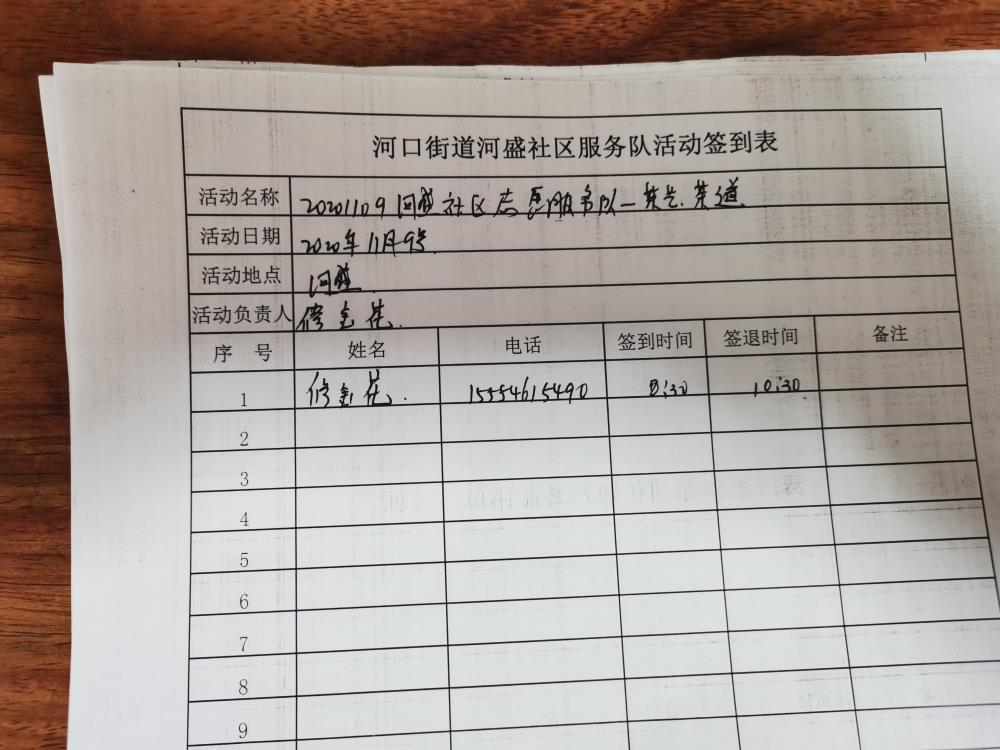 河口街道河盛社区服务队活动签到表
活动名称 20201109河盛社区志愿服务队一茶艺.茶道
活动日期 2020年11月9号
活动地点 河盛.
活动负责人 修金花.
序号 姓名 电话 签到时间 签退时间 备注
1 修金花. 15554615490 8:30 10:30
2
3
4
5
6
7
8
9